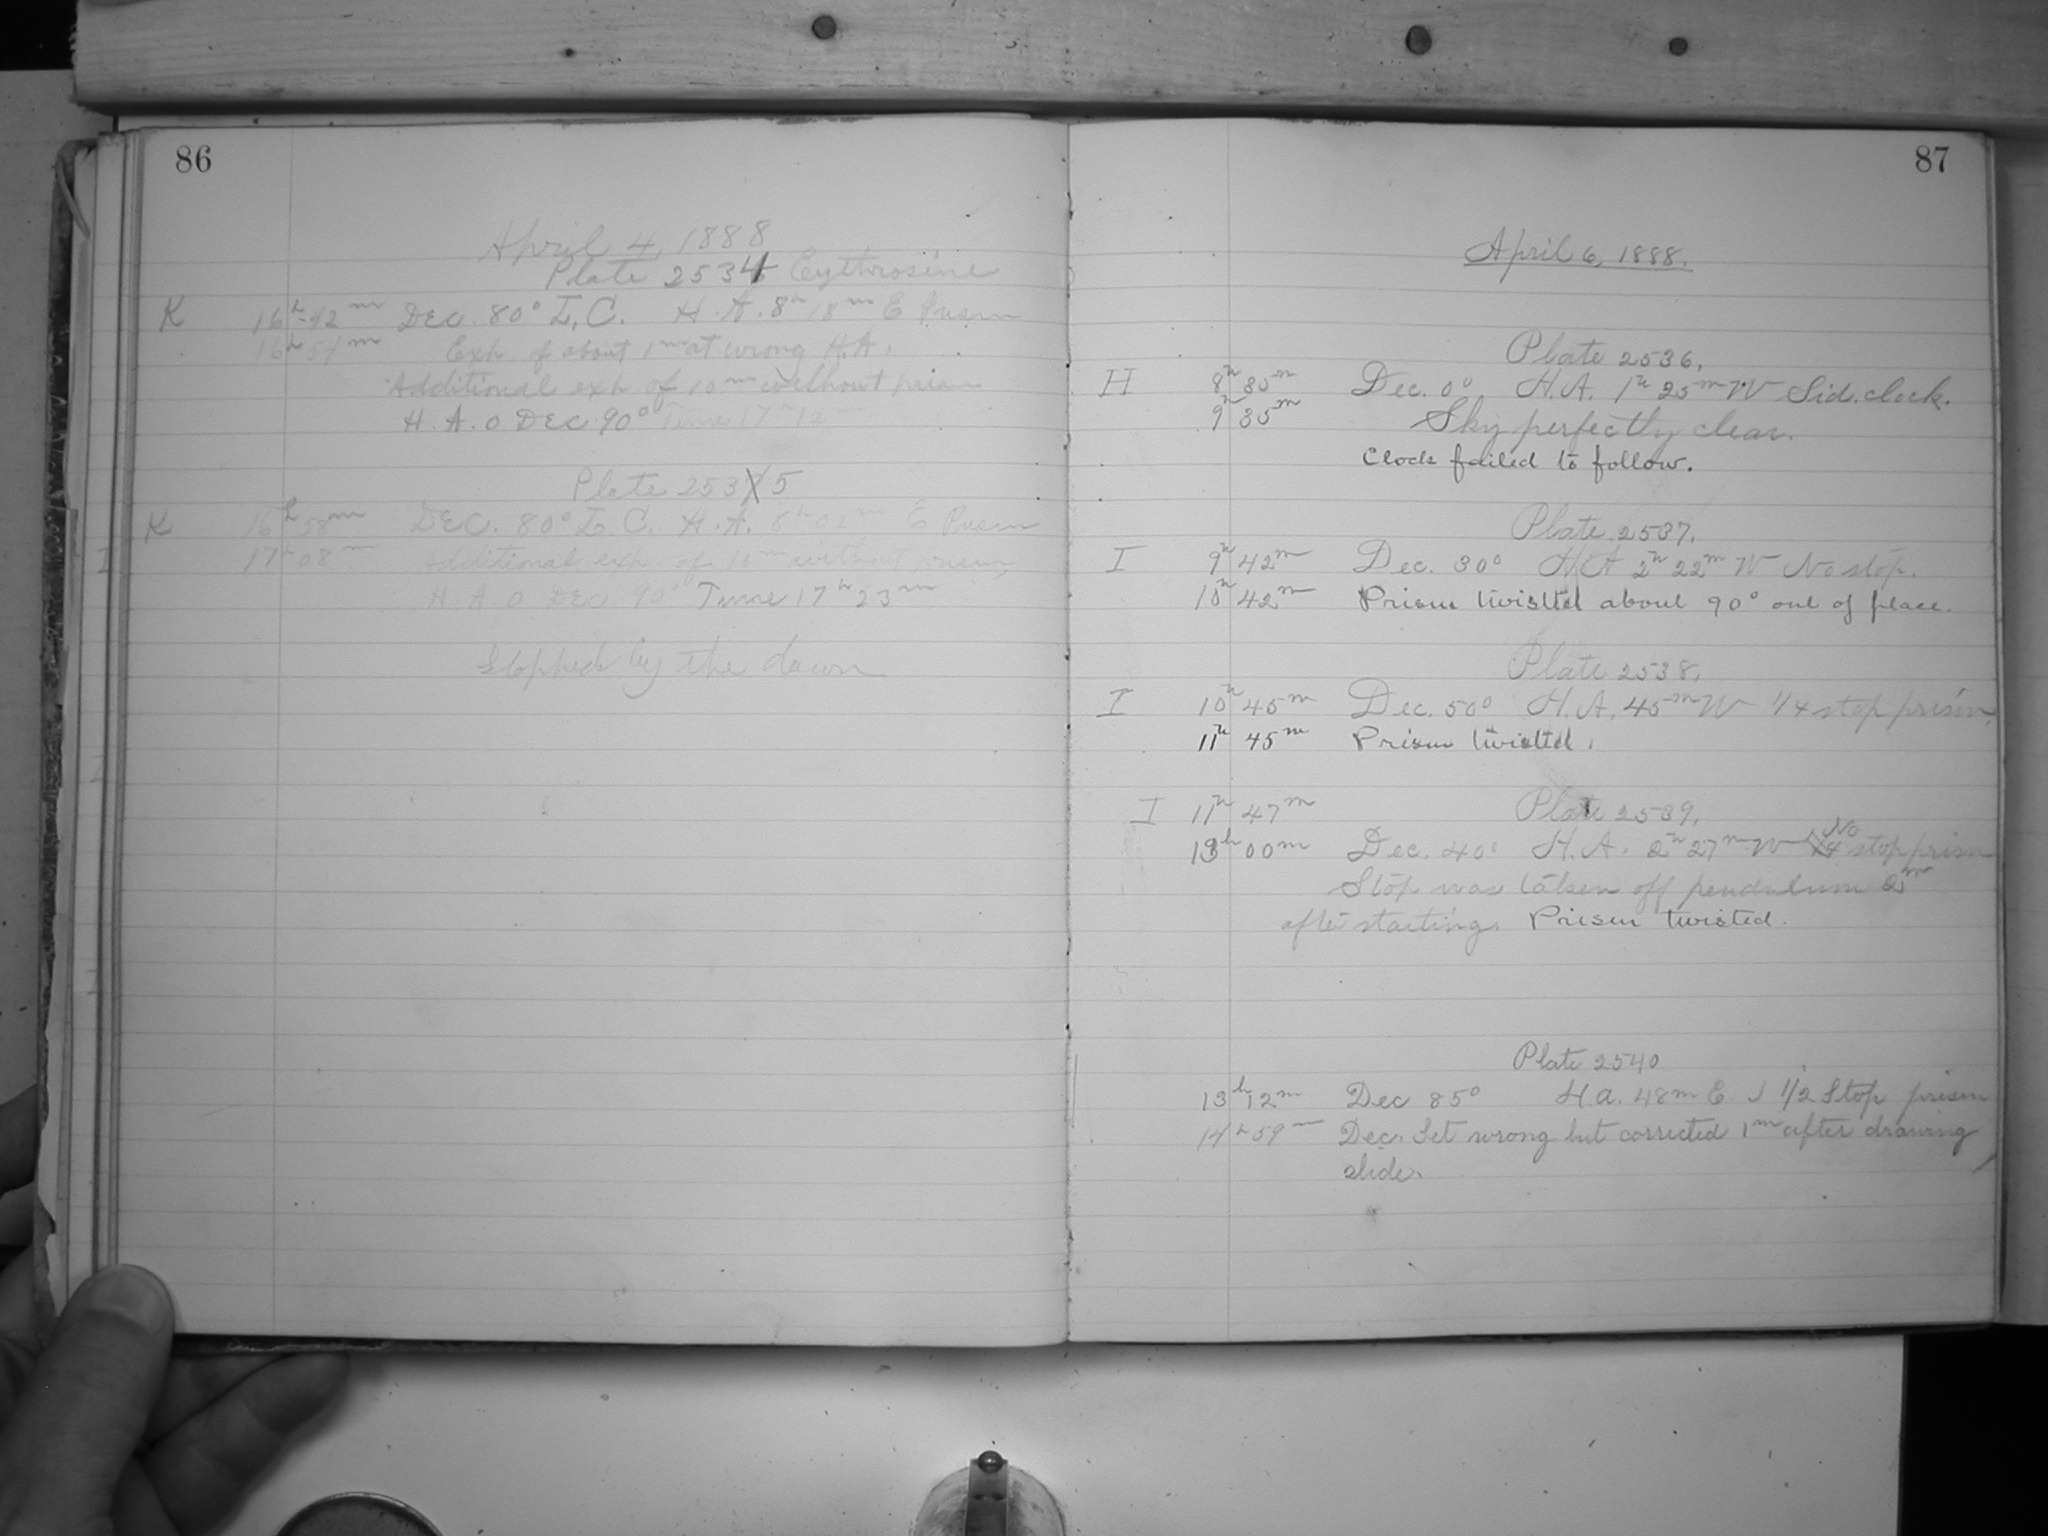 86
April 4, 1888
Plate 2534 Erythrosine
K 16h 42m Dec. 80° L.C. H.A. 8h 18m E Prism
16h 54m Exp. of about 1m at wrong H.A.
Additional exp of 10m without prism
H.A. 0 Dec 90° Time 17h 12m
Plate 253 5
K 16h 58m Dec. 80° L.C. H.A. 8h 02m E Prism
I 17h 08m Additional exp of 10m without prism,
H.A. 0 Dec 90° Time 17h 23m
Stopped by the dawn
87
April 6, 1888.
Plate 2536.
H 8h 35m Dec. 0° H.A. 1h 25m W Sid. clock.
9h 35m Sky perfectly clear.
Clock failed to follow.
Plate 2537.
I 9h 42m Dec. 30° H.A 2h 22m W No stop.
10h 42m Prism twisted about 90° out of place.
Plate 2538.
I 10h 45m Dec. 50° H.A. 45m W 1/4 stop prism.
11h 45m Prism twisted.
I 11h 47m Plate 2539.
13h 00m Dec. 40° H.A. 2h 27m W No stop prism
Stop was taken off pendulum 2m
after starting. Prism twisted.
Plate 2540
13h 12m Dec 85° H.A. 48m E 1/2 Stop prism
14h 59m Dec. Set wrong but corrected 1m after drawing
slide.